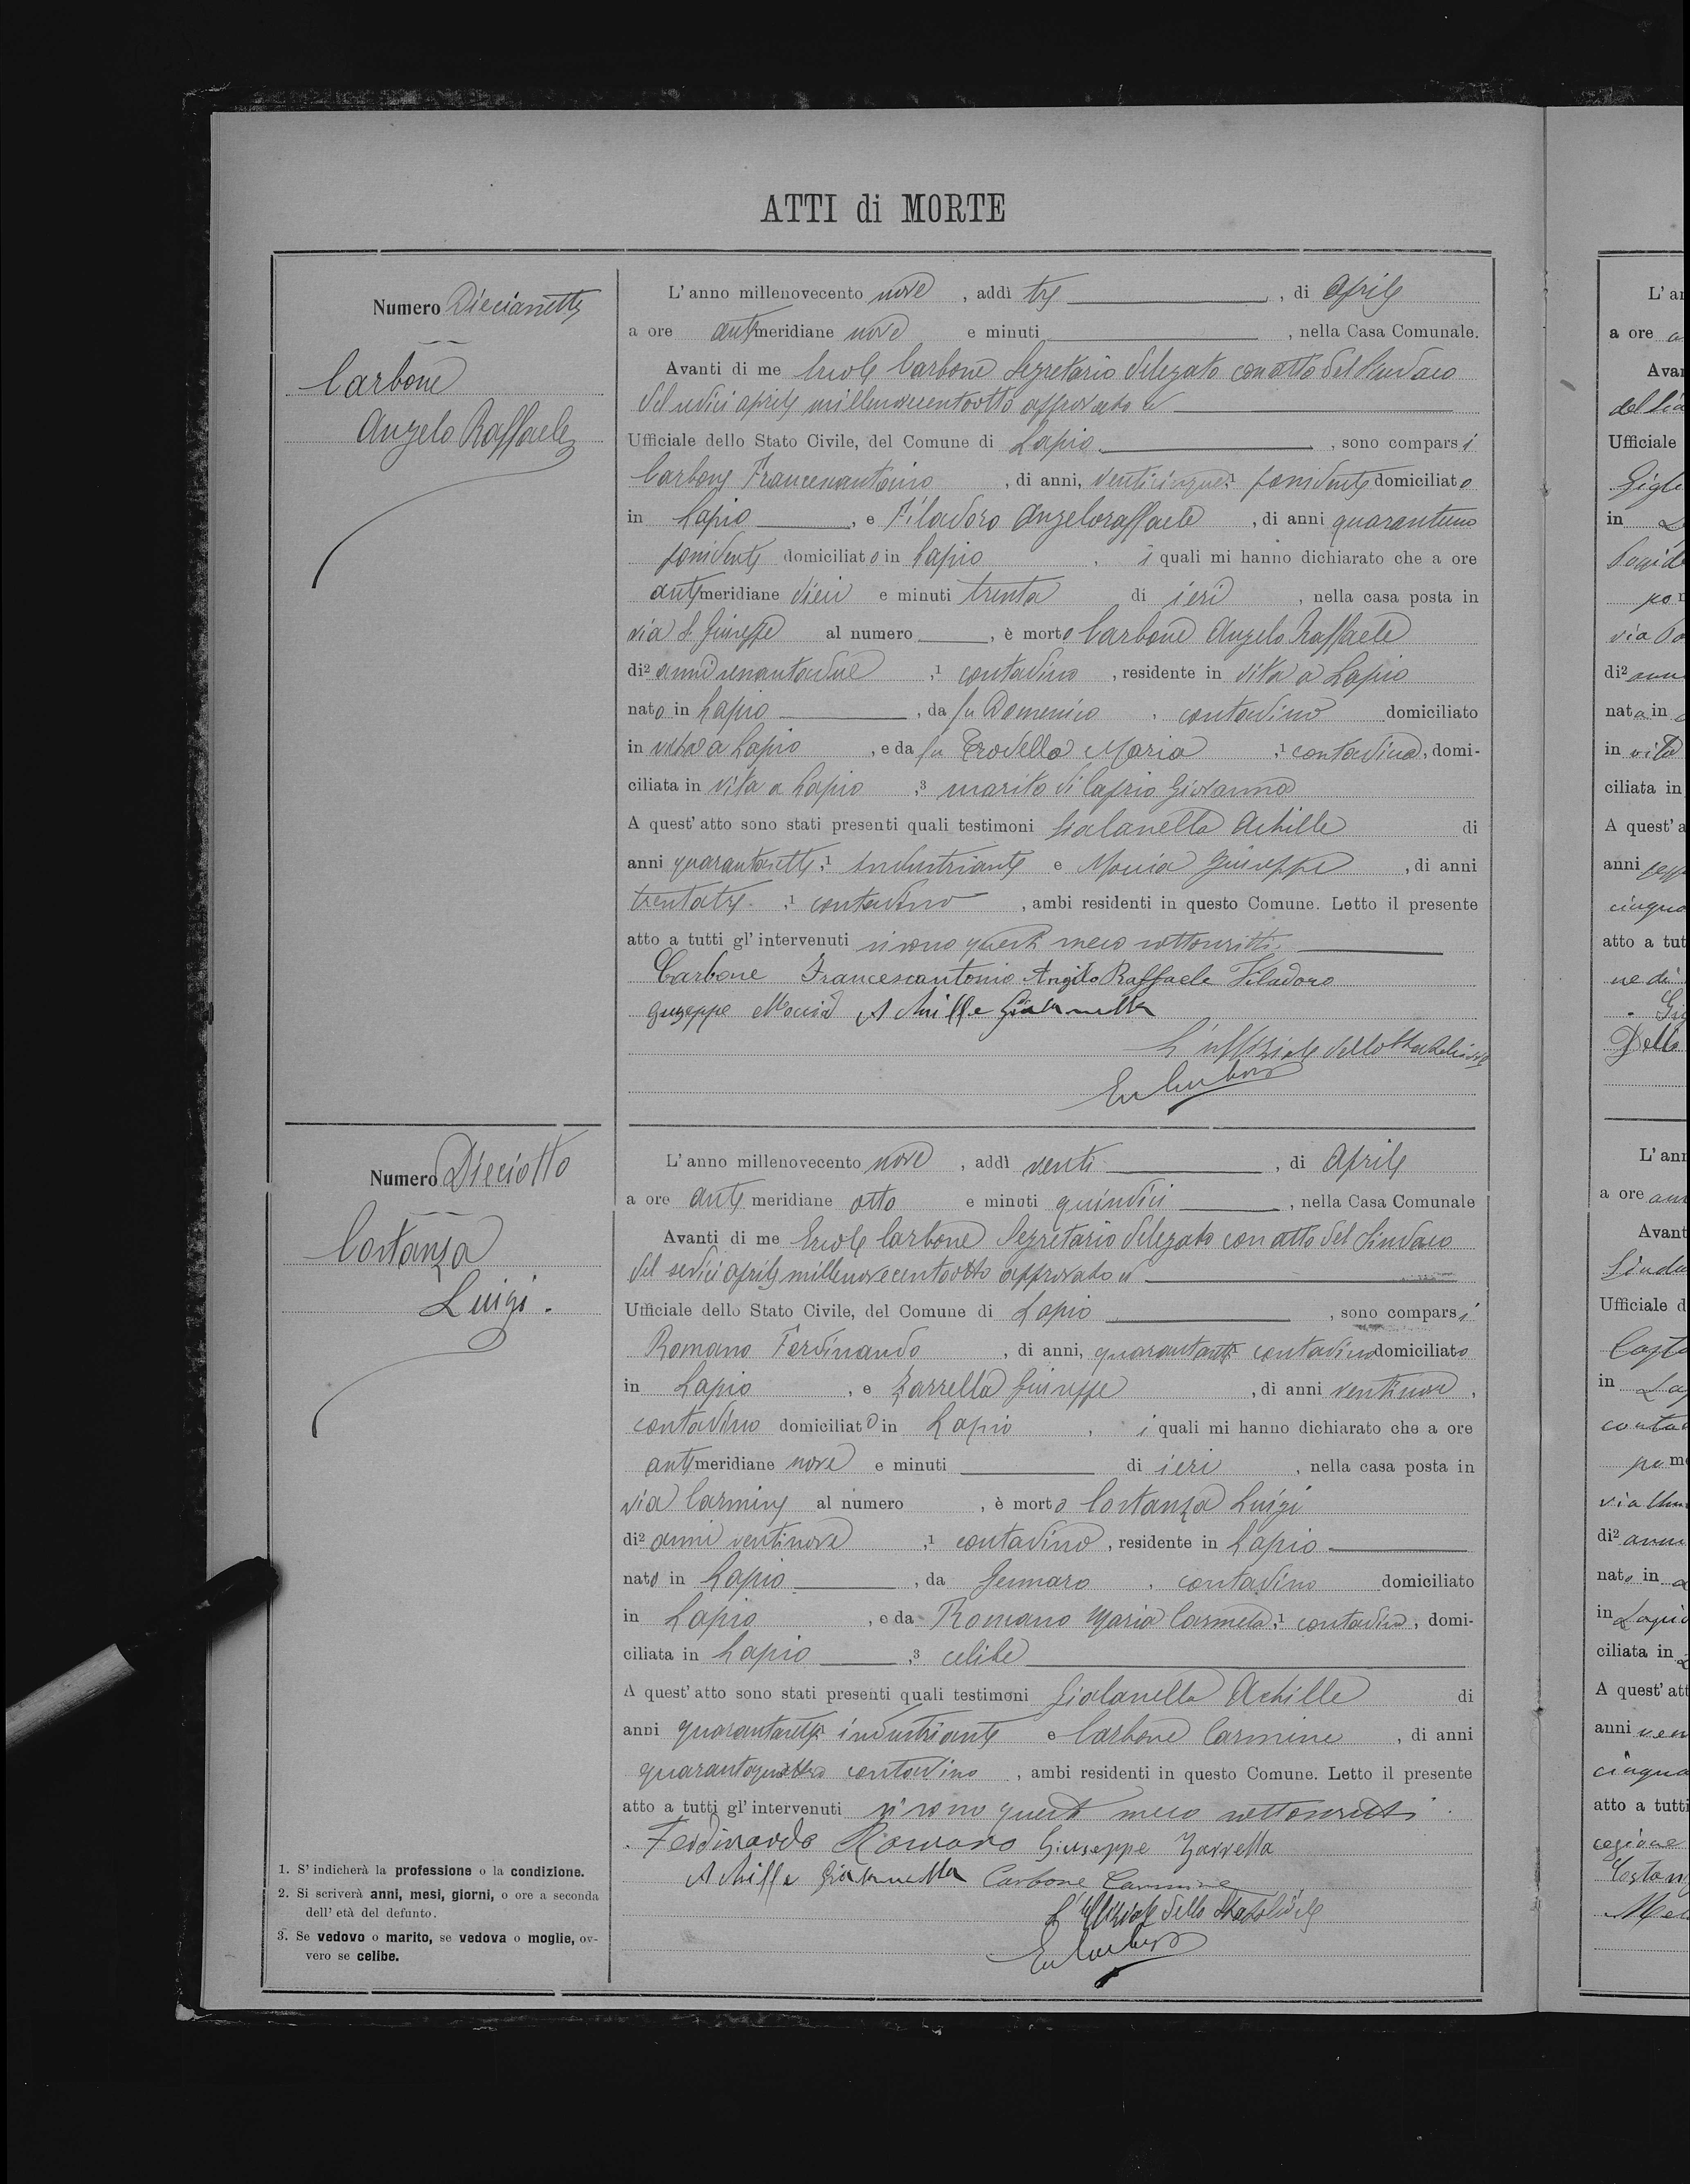 ATTI di MORTE
Numero Diecianette
Carbone
Angelo Raffaele
L'anno millenovecento nove, addì tre, di Aprile
a ore antimeridiane nove e minuti, nella Casa Comunale.
Avanti di me Ercole Carbone Segretario delegato con atto del Sindaco
del sedici aprile millenovecentootto approvato e
Ufficiale dello Stato Civile, del Comune di Lapio, sono comparsi
Carbone Francescantonio, di anni, venticinque,1 possidente domiciliato
in Lapio, e Filadoro Angeloraffaele, di anni quarantuno
possidente domiciliato in Lapio, i quali mi hanno dichiarato che a ore
antimeridiane dieci e minuti trenta di ieri, nella casa posta in
via S. Giuseppe al numero, è morto Carbone Angelo Raffaele
di2 anni,1 contadino, residente in vita a Lapio
nato in Lapio, da fu Domenico, contadino domiciliato
in vita a Lapio, e da fu Maria,1 contadina, domi-
ciliata in vita a Lapio,3 marito di Caprio Giovanna
A quest'atto sono stati presenti quali testimoni Gialanella Achille di
anni quarantasette,1 industriante e Moccia Giuseppe, di anni
trentatre,1 contadino, ambi residenti in questo Comune. Letto il presente
atto a tutti gl'intervenuti si sono questi meco sottoscritti.
Carbone Francescantonio Angelo Raffaele Filadoro
Giuseppe Moccia Achille Gialanella
L'uffiziale dello Stato Civile
Er Carbone
Numero Dieciotto
Costanza
Luigi.
L'anno millenovecento nove, addì venti, di Aprile
a ore antimeridiane otto e minuti quindici, nella Casa Comunale
Avanti di me Ercole Carbone Segretario delegato con atto del Sindaco
del sedici aprile millenovecentootto approvato e
Ufficiale dello Stato Civile, del Comune di Lapio, sono comparsi
Romano Ferdinando, di anni, quarantasette contadino domiciliato
in Lapio, e Zarrella Giuseppe, di anni ventinove,
contadino domiciliato in Lapio, i quali mi hanno dichiarato che a ore
antimeridiane nove e minuti di ieri, nella casa posta in
via Carmine al numero, è morto Costanza Luigi
di2 anni ventinove,1 contadino, residente in Lapio
nato in Lapio, da Gennaro, contadino domiciliato
in Lapio, e da Romano Maria Carmela,1 contadina, domi-
ciliata in Lapio,3 celibe
A quest'atto sono stati presenti quali testimoni Gialanella Achille di
anni quarantasette,1 industriante e Carbone Carmine, di anni
quarantaquattro contadino, ambi residenti in questo Comune. Letto il presente
atto a tutti gl'intervenuti si sono questi meco sottoscritti.
Ferdinando Romano Giuseppe Zarrella
Achille Gialanella Carbone Carmine
L'Uffiziale dello Stato Civile
Er Carbone
1. S'indicherà la professione o la condizione.
2. Si scriverà anni, mesi, giorni, o ore a seconda
dell'età del defunto.
3. Se vedovo o marito, se vedova o moglie, ov-
vero se celibe.